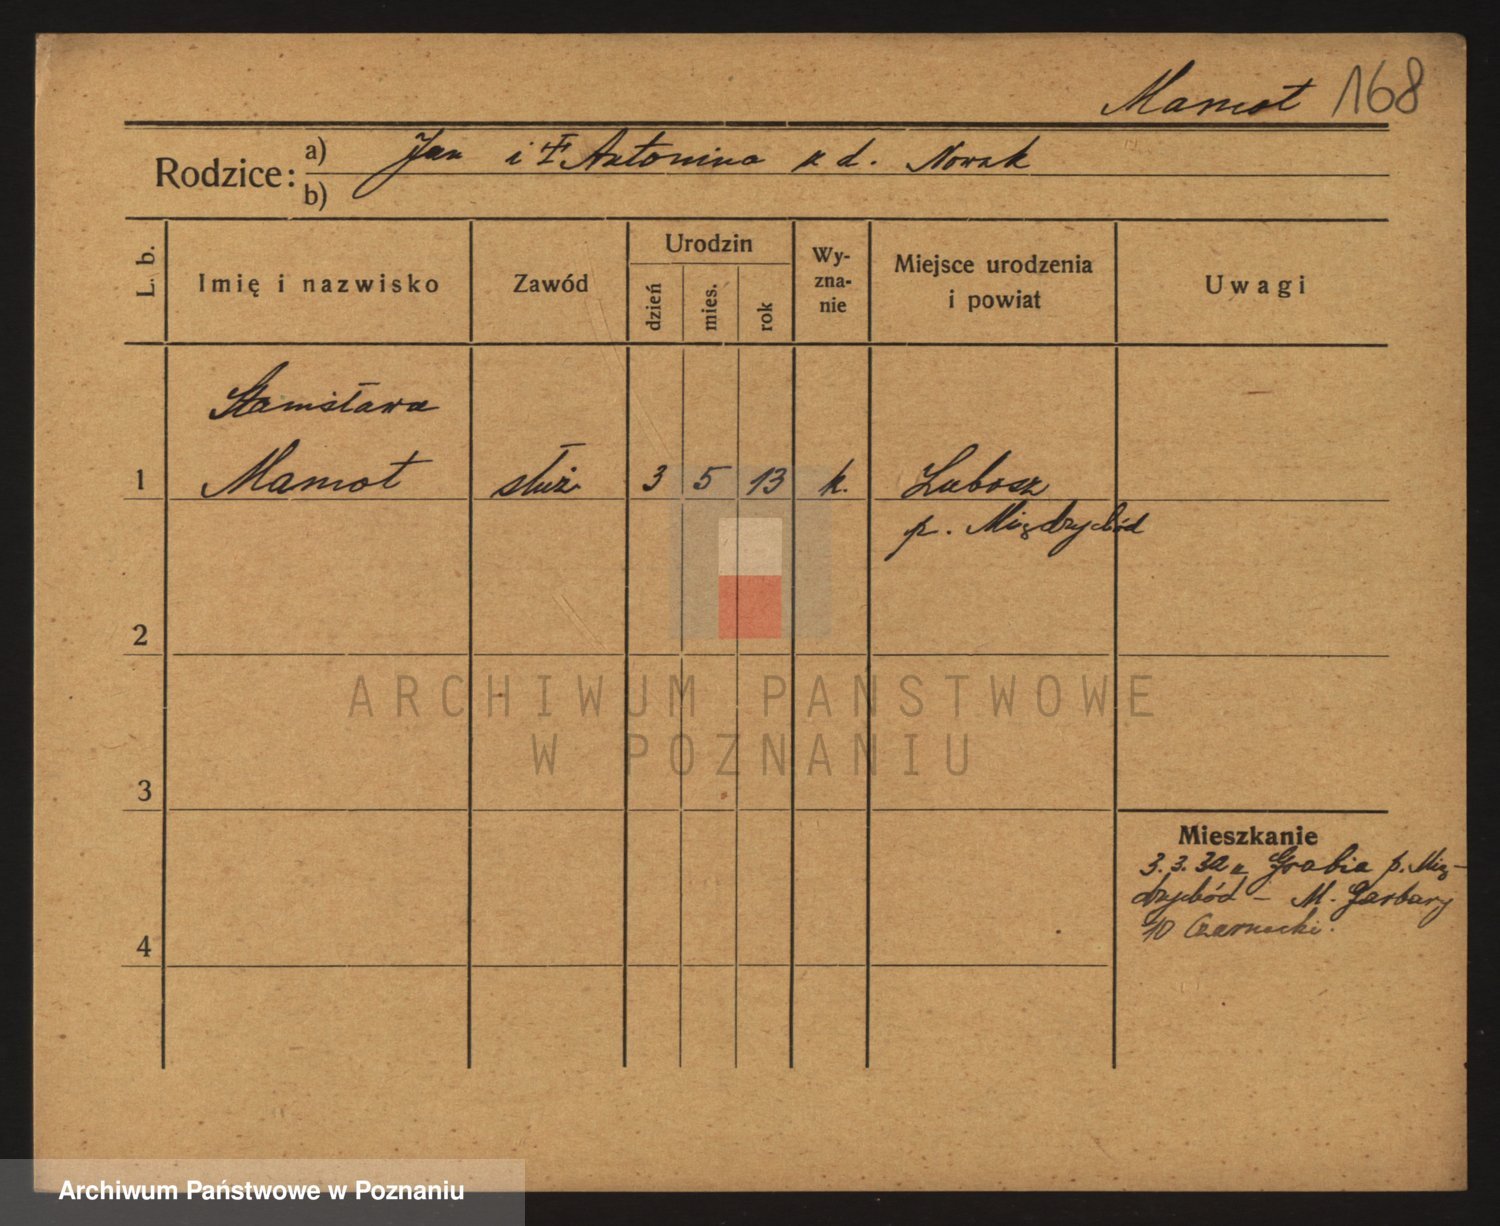 Mamot 168
Rodzice: a) Jan i Antonina z d. Nowak
b)
L. b. Imię i nazwisko Zawód Urodzin dzień mies. rok Wyznanie Miejsce urodzenia i powiat Uwagi
Stanisława
1 Mamot służ. 3 5 13 k. Lubosz
p. Międzychód
2
ARCHIWUM PAŃSTWOWE
W POZNANIU
3
Mieszkanie
3. 3. 32 z Grabia p. Mię-
dzychód – M. Garbary
10 Czarnecki.
4
Archiwum Państwowe w Poznaniu